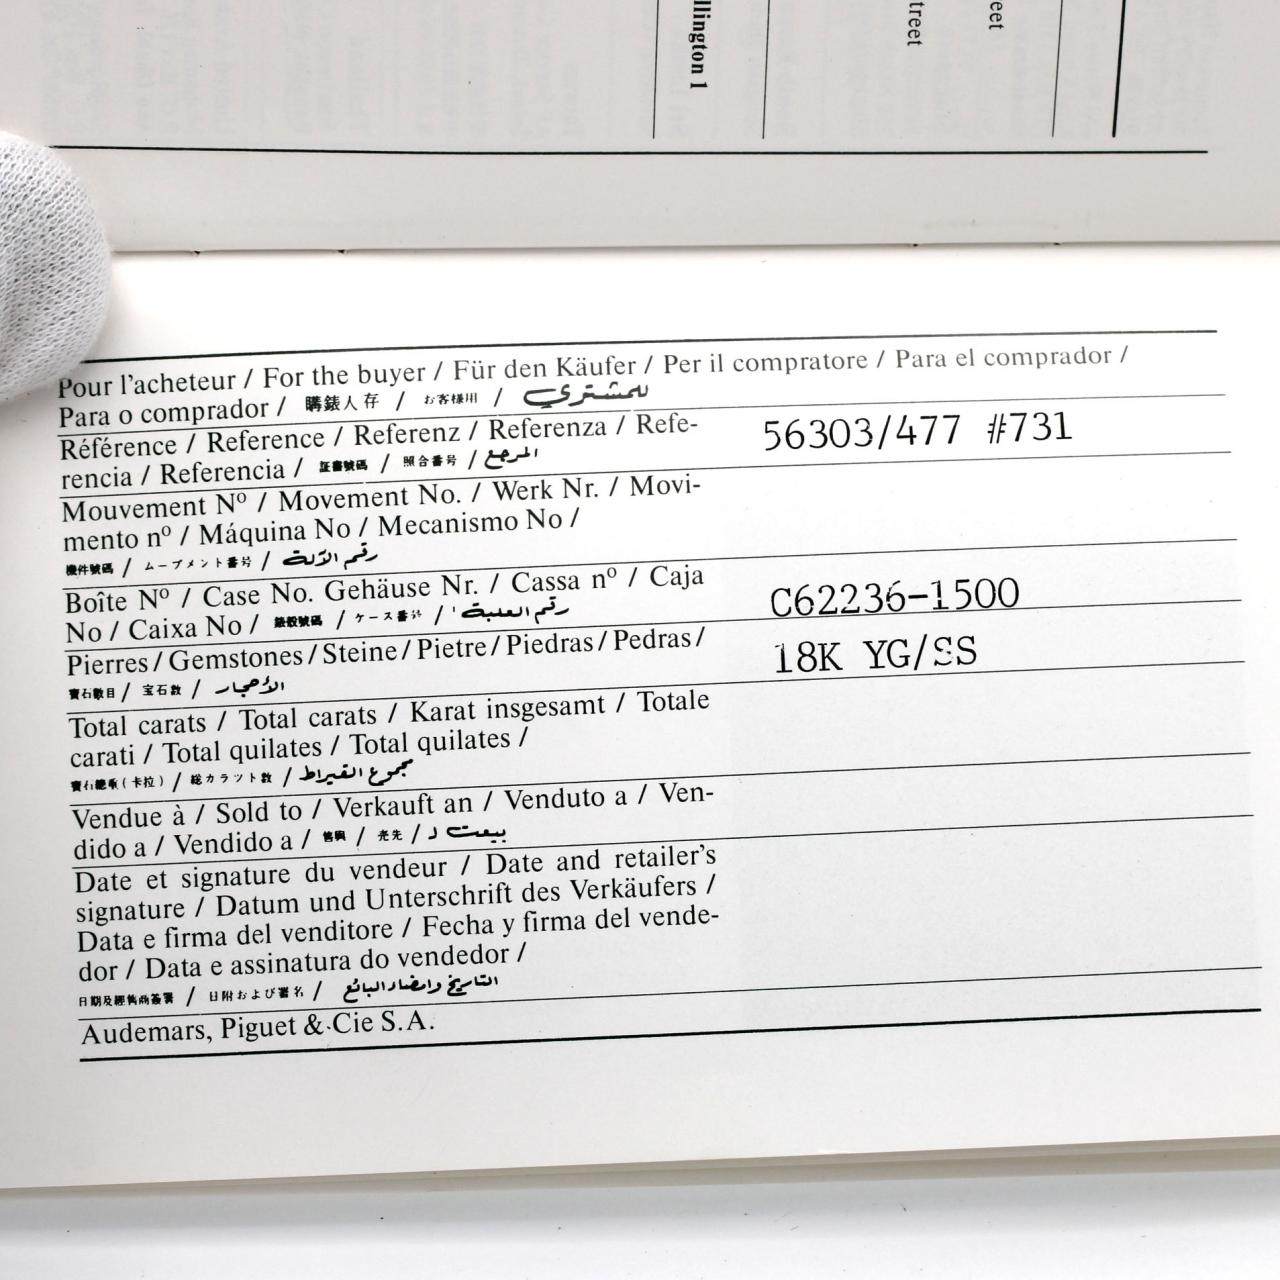 llington 1
treet
eet
Pour l'acheteur / For the buyer / Für den Käufer / Per il compratore / Para el comprador /
Para o comprador / 購錶人存 / お客様用 / للمشتري
Référence / Reference / Referenz / Referenza / Refe-
56303/477 #731
rencia / Referencia / 証書號碼 / 照合番号 / المرجع
Mouvement Nº / Movement No. / Werk Nr. / Movi-
mento nº / Máquina No / Mecanismo No /
機件號碼 / ムーブメント番号 / رقم الآلة
Boîte Nº / Case No. Gehäuse Nr. / Cassa nº / Caja
C62236-1500
No / Caixa No / 錶殼號碼 / ケース番号 / رقم العلبة
Pierres / Gemstones / Steine / Pietre / Piedras / Pedras /
18K YG/SS
寶石數目 / 宝石数 / الأحجار
Total carats / Total carats / Karat insgesamt / Totale
carati / Total quilates / Total quilates /
寶石總重(卡拉) / 総カラット数 / مجموع القيراط
Vendue à / Sold to / Verkauft an / Venduto a / Ven-
dido a / Vendido a / 售與 / 売先 / بيعت لـ
Date et signature du vendeur / Date and retailer's
signature / Datum und Unterschrift des Verkäufers /
Data e firma del venditore / Fecha y firma del vende-
dor / Data e assinatura do vendedor /
日期及經售商簽署 / 日附および署名 / التاريخ وامضاء البائع
Audemars, Piguet & Cie S.A.